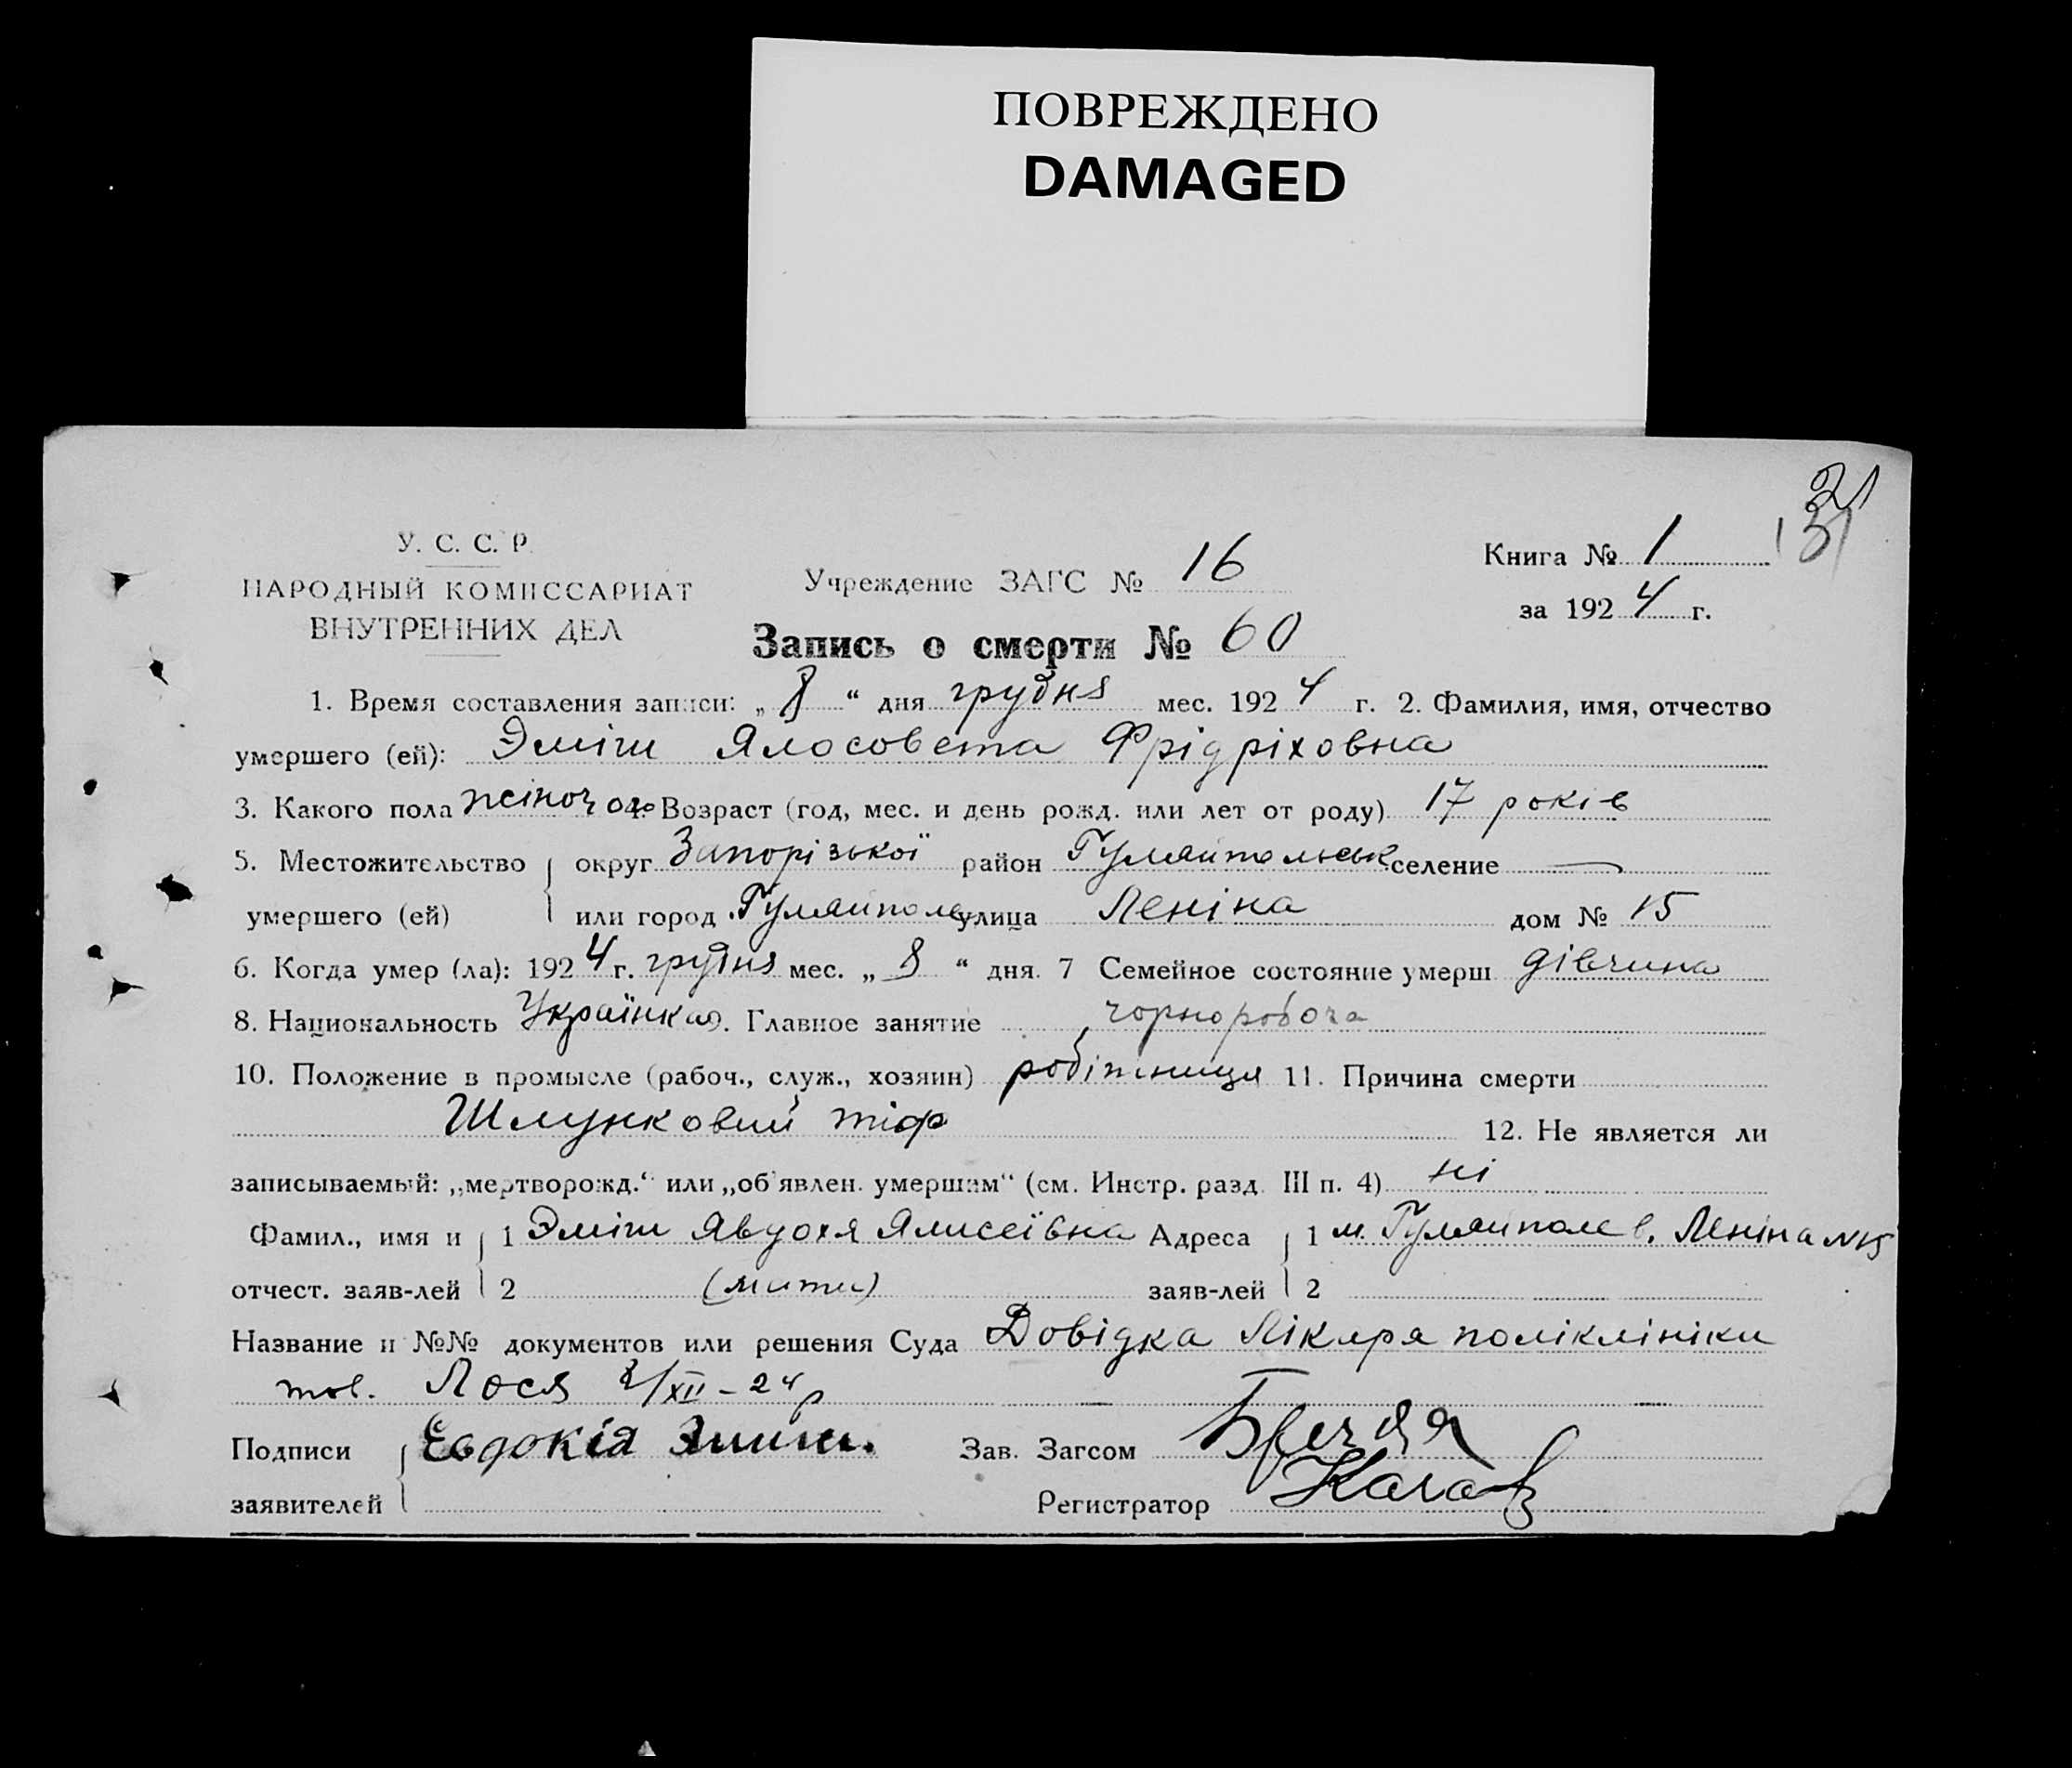 ПОВРЕЖДЕНО
DAMAGED
31
У. С. С. Р.
НАРОДНЫЙ КОМИССАРИАТ
ВНУТРЕННИХ ДЕЛ
Учреждение ЗАГС № 16
Книга № 1
за 1924 г.
Запись о смерти № 60
1. Время составления записи: „8“ дня грудня мес. 1924 г. 2. Фамилия, имя, отчество
умершего (ей): Эміш Ялосовета Фрідріховна
3. Какого пола жіночого 4. Возраст (год, мес. и день рожд. или лет от роду) 17 років
5. Местожительство округ Запорізької район Гуляйпольськ селение —
умершего (ей) или город Гуляйполе улица Леніна дом № 15
6. Когда умер (ла): 1924 г. грудня мес. „8“ дня. 7 Семейное состояние умерш. дівчина
8. Национальность Українка 9. Главное занятие чорноробоча
10. Положение в промысле (рабоч., служ., хозяин) робітниця 11. Причина смерти
Шлунковий тіф 12. Не является ли
записываемый: „мертворожд.“ или „об'явлен. умершим“ (см. Инстр. разд. III п. 4) ні
Фамил., имя и 1 Эміш Явдохя Ялисеївна Адреса 1 м. Гуляйполе в. Леніна №15
отчест. заяв-лей 2 (мати) заяв-лей 2
Название и №№ документов или решения Суда Довідка Лікаря поліклініки
тов. Лося 8/XII-24р
Подписи Евдокія Эмиш. Зав. Загсом
заявителей Регистратор